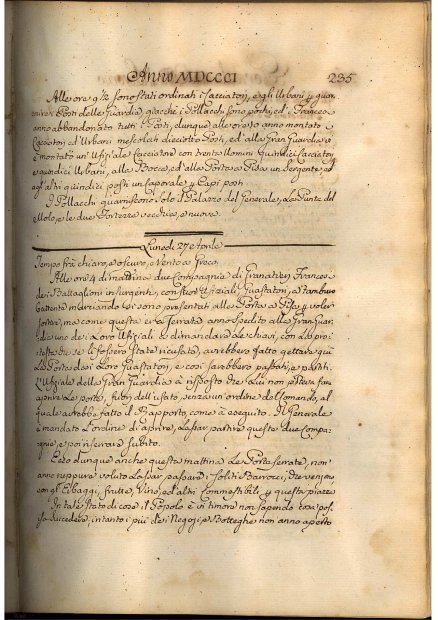 Anno MDCCCI 235
Alle ore 9 1/2 sono stati ordinati i Cacciatori, e gli Urbani p guar-
nire i Posti delle Guardie, giacchè i Pollacchi sono pochi, ed i Francesi
anno abbandonato tutti i Posti, dunque alle ore 10 anno montato i
Cacciatori ed Urbani mescolati dieciotto Posti, ed alla Gran Guardia vi
è montato un' Ufiziale Cacciatore con trenta Uomini quindici Cacciatori
e quindici Urbani, alla Bocca, ed alla Porta a Pisa un Sergente, ed
agl' altri quindici posti un Caporale p Capi posti
I Pollacchi guarniscono solo il Palazzo del Generale, La Punta del
Molo, e le due Fortezze vecchia, e nuova.
Lunedì 27 Aprile
Tempo frà chiaro, e oscuro, e Vento a Greco.
Alle ore 4 di mattina due Compagnie di Granatieri Francesi
dei Battaglioni insurgenti, con suoi Ufiziali Guastatori, e tamburo
battente marciando si sono presentati alla Porta a Pisa p voler
sortire, ma come questa era serrata anno spedito alla Gran Guar-
dia uno de i Loro Ufiziali a dimandare Le chiavi, con La pro-
testa che se li fossero state ricusate, avrebbero fatto gettare giù
La Porta dai Loro Guastatori, e così sarebbero passati, e partiti.
L'Ufiziale della Gran Guardia à risposto che Lui non poteva fare
aprire Le porte, fuori dell' usato, senza un' ordine del Comando, al
quale avrebbe fatto il Rapporto, come à eseguito. Il Generale
à mandato L'ordine di aprire, Lassar partire queste due Compa-
gnie, e poi riserrare subito.
Essendo dunque anche questa mattina Le Porte serrate, non
anno neppure voluto Lassar passare i soliti Barrocci, che vengono
con gl' Erbaggi, frutta, Vino, ed altri Commestibili p questa piazza
In tale stato di cose il Popolo è in timore non sapendo cosa pos-
sa succedere, intanto i più de i Negozj, e Botteghe non anno aperto